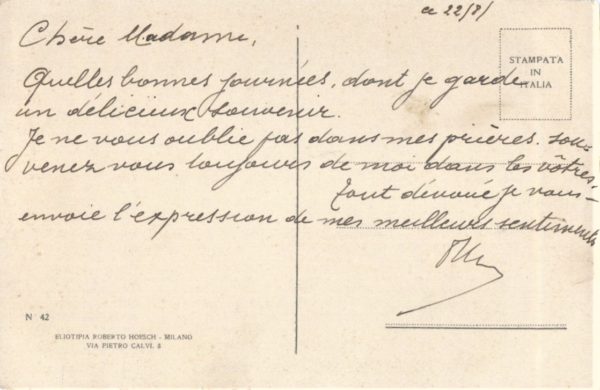 ce 22/8/
Chère Madame,
STAMPATA
IN
ITALIA
Quelles bonnes journées, dont je garde
un délicieux souvenir.
Je ne vous oublie pas dans mes prières. Sou-
venez vous toujours de moi dans les vôtres.
Tout dévoué je vous
envoie l'expression de mes meilleurs sentiments
N 42
ELIOTIPIA ROBERTO HOESCH - MILANO
VIA PIETRO CALVI, 2